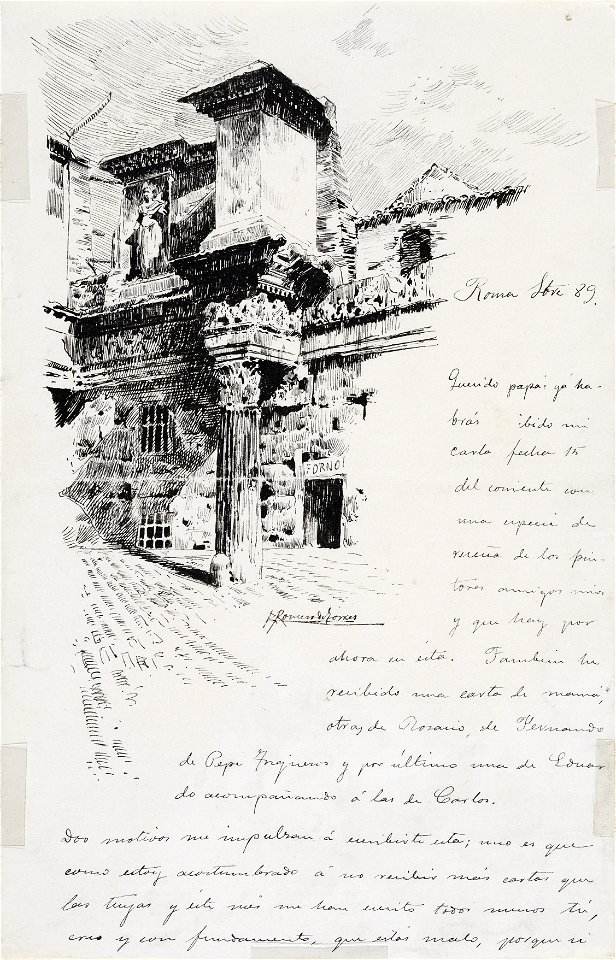 Roma Sbre 89.
FORNO
Querido papá: ya ha-
brás ibido mi
carta fecha 15
del corriente con
una especie de
reseña de los pin-
tores amigos mios
y que hay por
JRomero de Torres
ahora en ésta. Tambien he
recibido una carta de mamá,
otras de Rosario, de Fernando
de Pepe y por último una de Eduar
do acompañando á las de Carlos.
Dos motivos me impulsan á escribirte esta; uno es que
como estoy acostumbrado á no recibir más cartas que
las tuyas y éste mes me han escrito todos menos tú,
creo y con fundamento, que estás malo, porque si